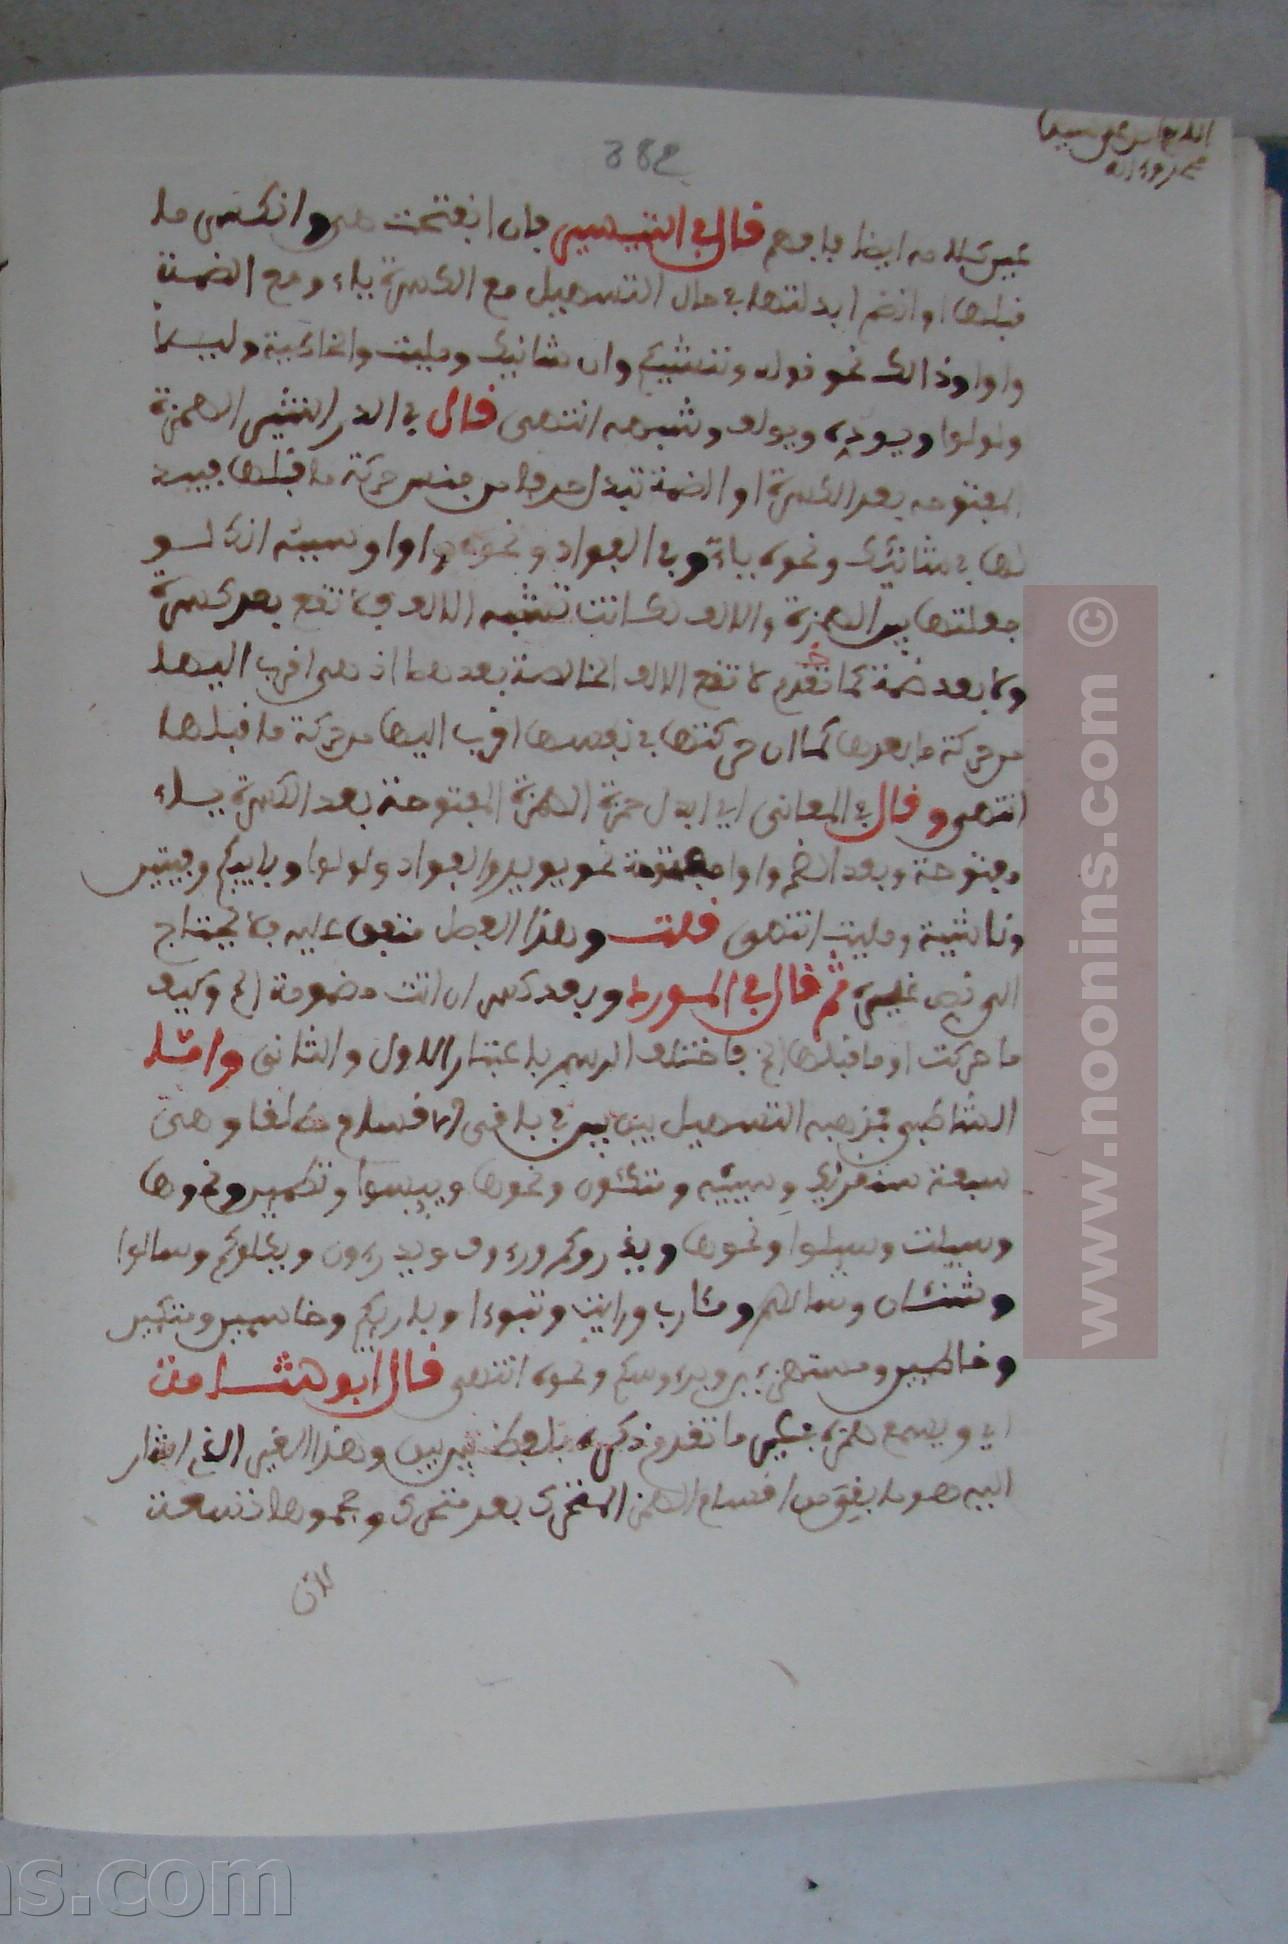 382
غير كلامه ايضا فافهم قال في التيسير فإن انفتحت هي وانكسر ما
قبلها او انضم ابدلتها في حال التسهيل مع الكسرة ياء ومع الضمة
واوا وذالك نحو قوله وننشيكم وان شانيك ومليت والخاطية وليلا
ولولوا ويوده ويولف وشبهه انتهى قال في الدر النثير الهمزة
المفتوحه بعد الكسرة او الضمة تبدل حرفا من جنس حركة ما قبلها
لها في شانئك ونحوه ياء وفي الفواد ونحوه واوا وسببه انك لو
جعلتها بين الهمزة والالف لكانت تشبه الالف فلا تقع بعد كسرة
ولا بعد ضمة كما تقدم لا تقع الالف الخالصة بعدهما اذ هي اقرب اليها
من حركة ما بعدها كما ان حركتها في نفسها اقرب اليها من حركة ما قبلها
انتهى وقال في المعاني اي ابدل حمزة الهمزة المفتوحة بعد الكسرة ياء
مفتوحة وبعد الضم واوا مفتوحة نحو يويد والفواد ولولوا وباييكم وفيتين
وناشية ومليت انتهى قلت وهذا الفصل متفق عليه فلا يحتاج
الى نص غيره ثم قال في المورد وبعد كسر ان اتت مضمومة الخ وكيف
ما حركت او ما قبلها الخ فاختلف الرسم باعتبار الاول والثاني واما
الشاطبي فمذهبه التسهيل بين بين في باقي الاقسام مطلقا وهي
سبعة سنقرئك وسيئه ومتكئون ونحوها ويبسوا وتطمين ونحوها
وسيلت وسيلوا ونحوها ويذروكم ورءوف ويدرءون ويكلوكم وسالوا
وشنئان وسالهم ومئارب ورايت وتبوءا وبارئكم وخاسين ومتكين
وخاطين ومستهزءين وبرءوسكم ونحوه انتهى قال ابو شامة
اي ويسمع همزه في غير ما تقدم ذكره بلفظ بين بين وهذا الغير الذي اشار
اليه هو ما بقي من اقسام الهمز المتحرك بعد متحرك ومجموعها تسعة
لان
www.noonins.com ©
ns.com